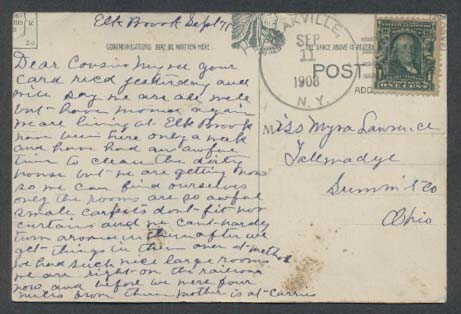 Elk Brook Sept 11
COMMUNICATIONS MAY BE WRITTEN HERE.
Dear Cousin Myra your
Card rec'd yesterday and
will say we are all well
but have moved again
we are living at Elk Brook
have been here only a week
and have had an awful
time to clean the dirty
house but we are getting now
so we can find ourselves
only the rooms are so awful
small carpets don't fit nor
curtains and we can't hardly
turn around in them after we
get things in them over at
we had such nice large rooms
we are right on the railroad
now and before we were four
miles from them Mother is at Carries
VILLE,
SEP
11
1908
N.Y.
THE SPACE ABOVE IS
POST
ADD
ONE CENT
Miss Myra Lawrence
Talemadge
Summit Co
Ohio